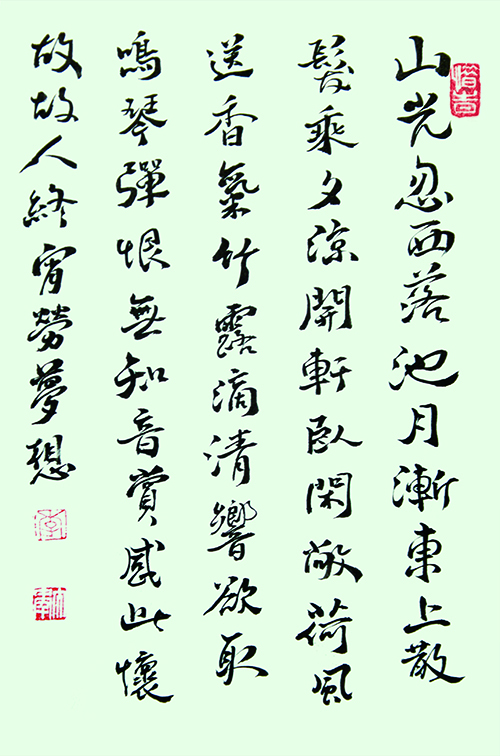 山光忽西落池月漸東上散
髮乘夕涼開軒臥閑敞荷風
送香氣竹露滴清響欲取
鳴琴彈恨無知音賞感此懷
故故人終宵勞夢想